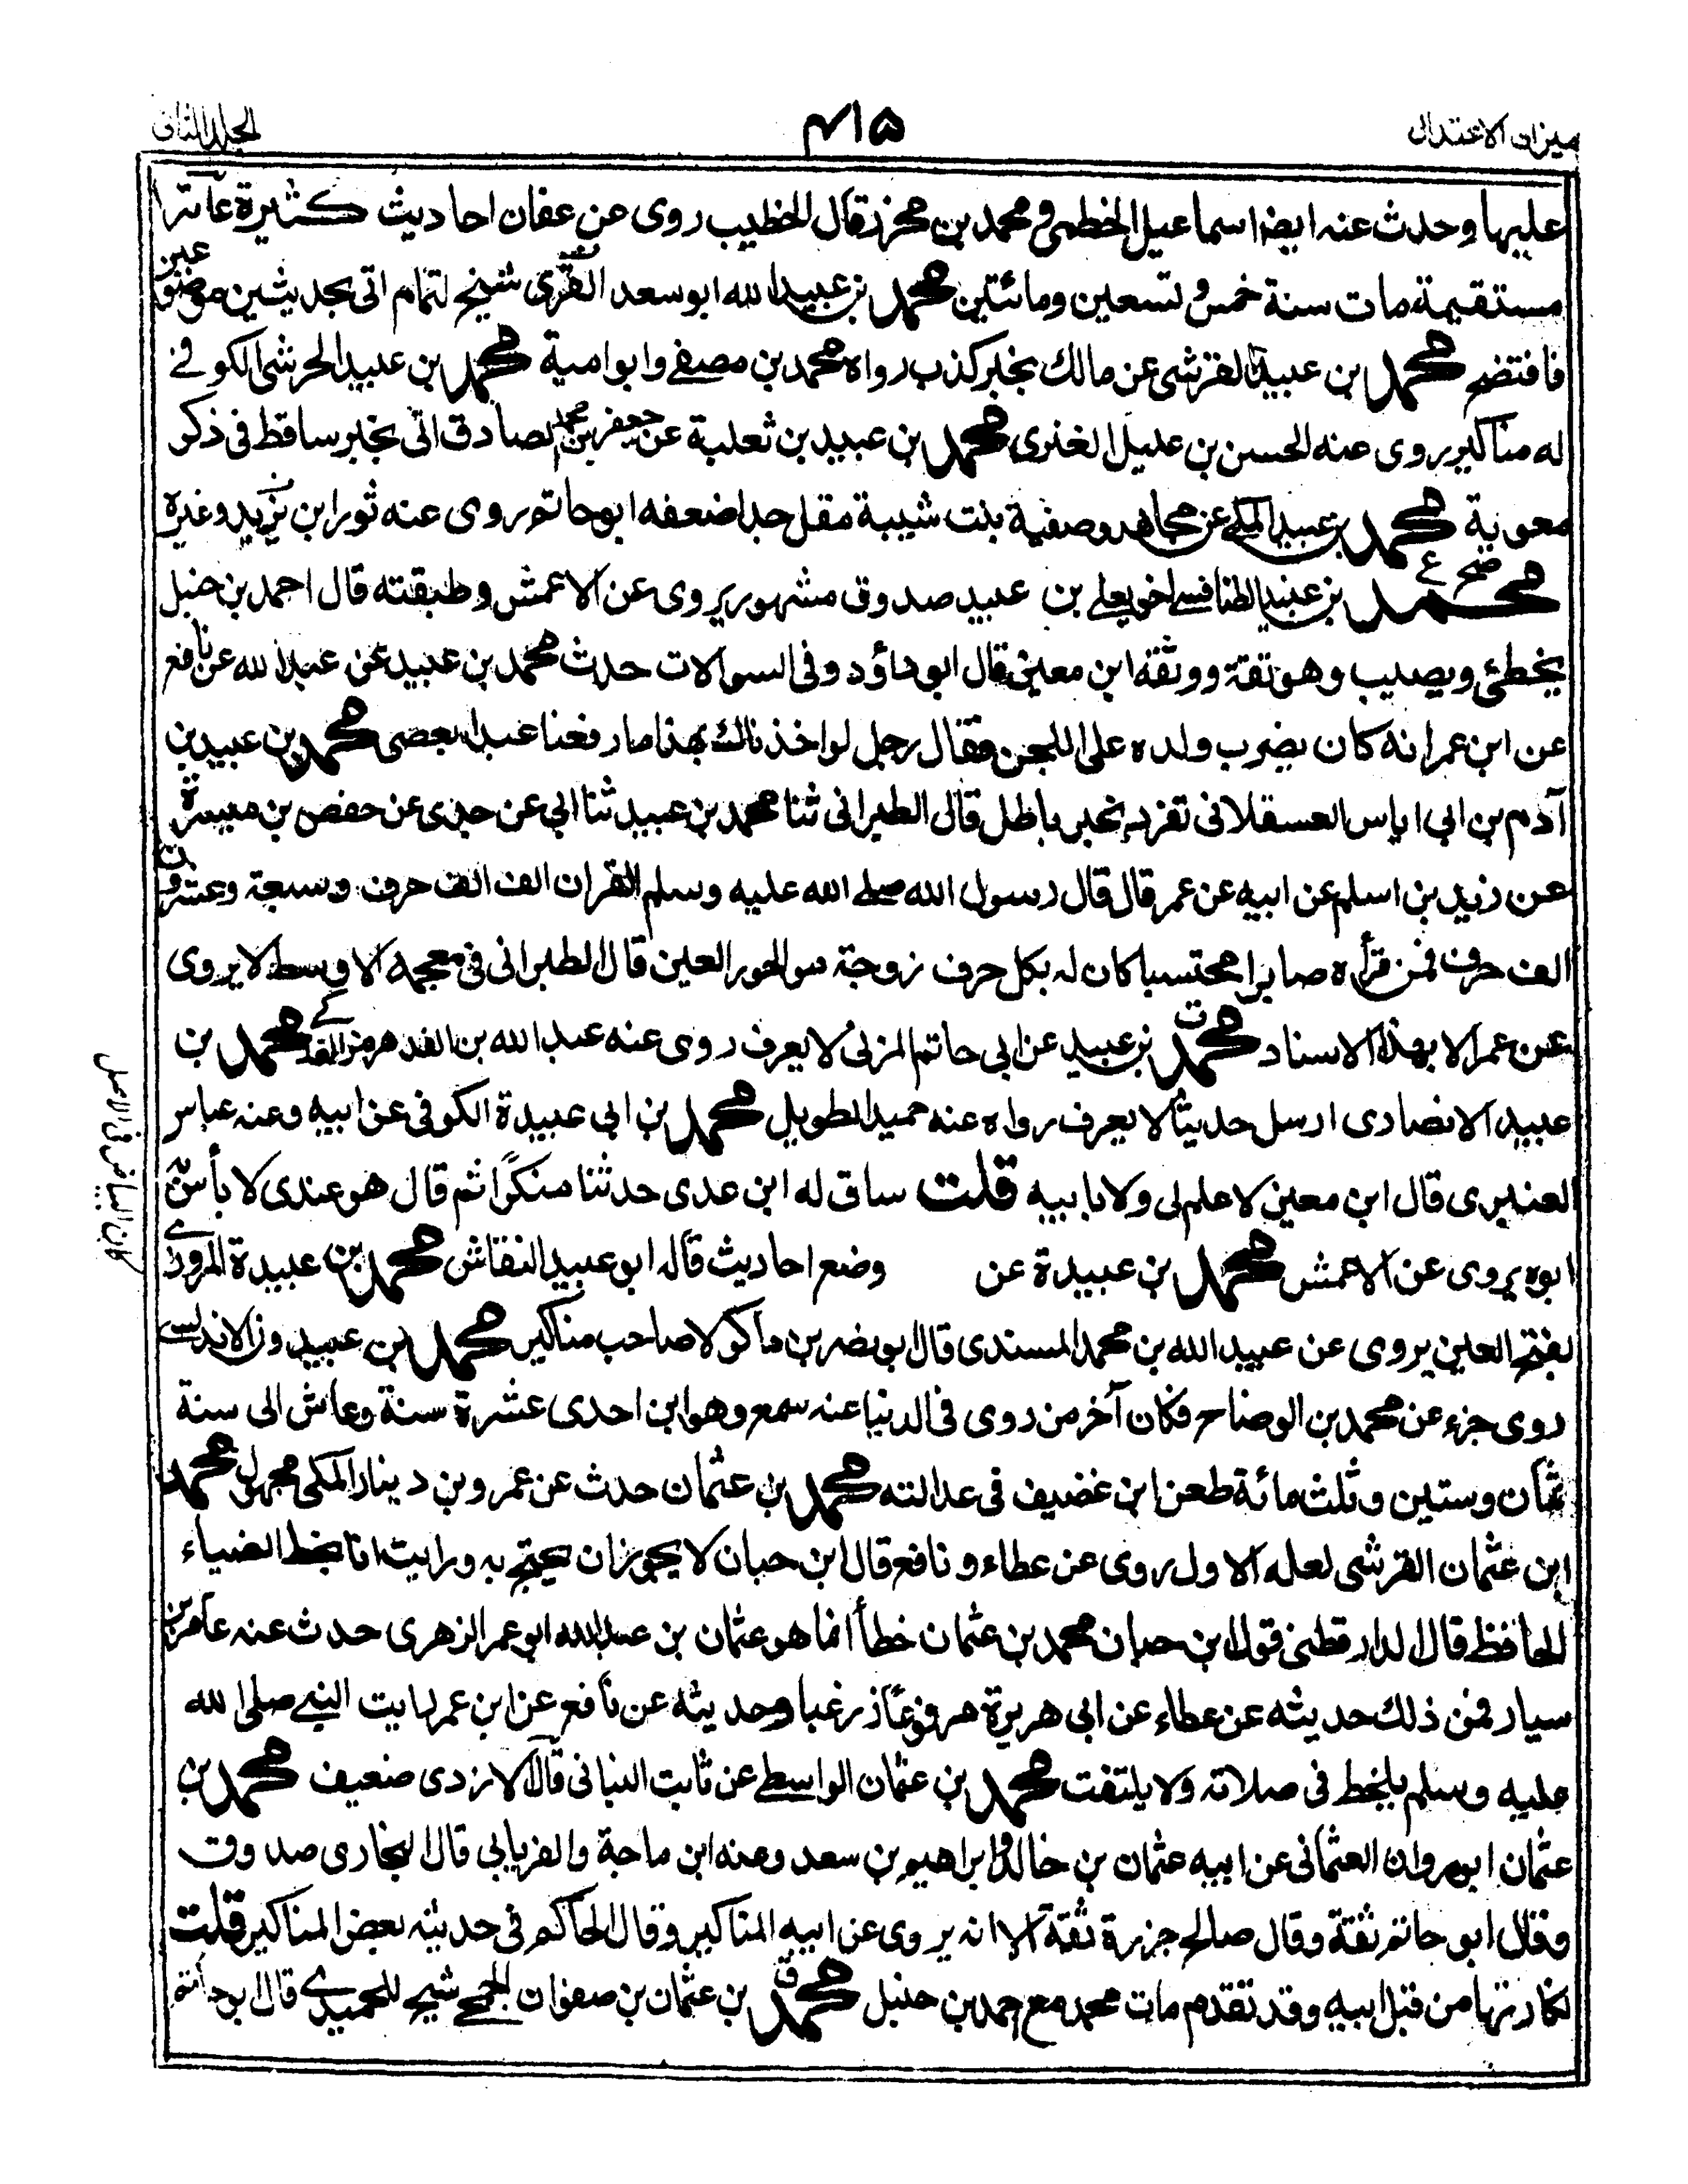 ميزان الاعتدال
٤١٥
الجلد الثاني
عليها وحدث عنه ايضا اسماعيل الخطمي ومحمد بن محرز قال الخطيب روى عن عفان احاديث كثيرة عامتها
مستقيمة مات سنة خمس وتسعين ومائتين محمد بن عبيد الله ابو سعد القرشي شيخ لتمام اتى بحديثين موضوعين
فافتضح محمد بن عبيد القرشي عن مالك بخبر كذب رواه محمد بن مصفى وابو امية محمد بن عبيد الحرشي الكوفي
له مناكير روى عنه الحسن بن عليل العنزى محمد بن عبيد بن ثعلبة عن جعفر بن محمد الصادق اتى بخبر ساقط فى ذكر
معوية محمد بن عبيد المكي عن مجاهد وصفية بنت شيبة مقل جدا ضعفه ابو حاتم روى عنه ثور ابن يزيد وغيره
صح ع محمد بن عبيد الطنافسي اخو يعلى بن عبيد صدوق مشهور يروى عن الاعمش وطبقته قال احمد بن حنبل
يخطئ ويصيب وهو ثقة ووثقه ابن معين قال ابو داؤد وفى السوالات حدث محمد بن عبيد عن عبد الله عن نافع
عن ابن عمر انه كان يضرب ولده على اللحن فقال رجل لو اخذناك بهذا ما رفعنا عنك العصى محمد بن عبيد بن
آدم بن ابي اياس العسقلانى تفرد بخبر باطل قال الطبرانى ثنا محمد بن عبيد ثنا ابي عن جدى عن حفص بن ميسرة
عن زيد بن اسلم عن ابيه عن عمر قال قال رسول الله صلى الله عليه وسلم القران الف الف حرف وسبعة وعشرون
الف حرف فمن قرأه صابرا محتسبا كان له بكل حرف زوجة من الحور العين قال الطبرانى فى معجمه الاوسط لا يروى
عن عمر الا بهذا الاسناد محمد ت بن عبيد عن ابي حاتم المزنى لا يعرف روى عنه عبد الله بن هرمز الفدكي محمد بن
عبيد الانصارى ارسل حديثا لا يعرف رواه عنه حميد الطويل محمد بن ابى عبيدة الكوفى عن ابيه وعنه عباس
العنبرى قال ابن معين لا علم لى ولا بابيه قلت ساق له ابن عدى حدثنا منكرا ثم قال هو عندى لا بأس به
ابوه يروى عن الاعمش محمد بن عبيدة عن وضع احاديث قاله ابو عبيد النقاش محمد بن عبيدة المروزي
بفتح العين يروى عن عبيد الله بن محمد المسندى قال ابو نصر بن ماكولا صاحب مناكير محمد بن عبيدون الاندلسي
روى جزء عن محمد بن الوضاح فكان آخر من روى فى الدنيا عنه سمع وهو ابن احدى عشرة سنة وعاش الى سنة
ثمان وستين وثلث مائة طعن ابن غضيف فى عدالته محمد بن عثمان حدث عن عمرو بن دينار المكى مجهول محمد
ابن عثمان القرشى لعله الاول روى عن عطاء ونافع قال ابن حبان لا يجوز ان يحتج به ورايت انا بخط الضياء
الحافظ قال الدارقطني قول ابن حبان محمد بن عثمان خطأ انما هو عثمان بن عبد الله ابو عمر الزهرى حدث عنه عامر بن
سيار فمن ذلك حديثه عن عطاء عن ابى هريرة مرفوعا زر غبا وحديثه عن نافع عن ابن عمر رايت النبي صلى الله
عليه وسلم يلحظ فى صلاته ولا يلتفت محمد بن عثمان الواسطي عن ثابت البنانى قال الازدى ضعيف محمد بن
عثمان ابو مروان العثمانى عن ابيه عثمان بن خالد وابراهيم بن سعد وعنه ابن ماجة والفريابى قال البخارى صدوق
وقال ابو حاتم ثقة وقال صالح جزرة ثقة الا انه يروى عن ابيه المناكير وقال الحاكم فى حديثه بعض المناكير قلت
نكارتها من قبل ابيه وقد تقدم مات محمد مع احمد بن حنبل محمد ق بن عثمان بن صفوان الجمحي شيخ للحميدي قال ابو حاتم
كان البياض فى الاصل